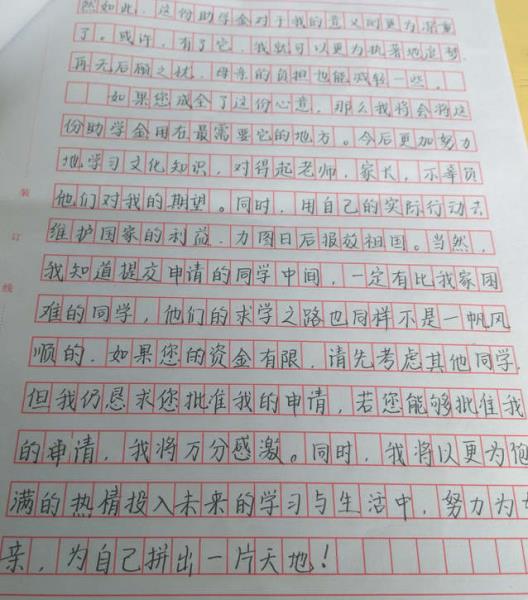 然如此，这份助学金对于我的意义则更为深重
了。或许，有了它，我就可以更为执著地追梦，
再无后顾之忧，母亲的负担也能减轻一些。
如果您成全了这份心意，那么我将会将这
份助学金用在最需要它的地方。今后更加努力
地学习文化知识，对得起老师，家长，不辜负
他们对我的期望。同时，用自己的实际行动去
维护国家的利益，力图日后报效祖国。当然，
我知道提交申请的同学中间，一定有比我家困
难的同学，他们的求学之路也同样不是一帆风
顺的，如果您的资金有限，请先考虑其他同学，
但我仍恳求您批准我的申请，若您能够批准我
的申请，我将万分感激。同时，我将以更为饱
满的热情投入未来的学习与生活中，努力为母
亲，为自己拼出一片天地！
装
订
线